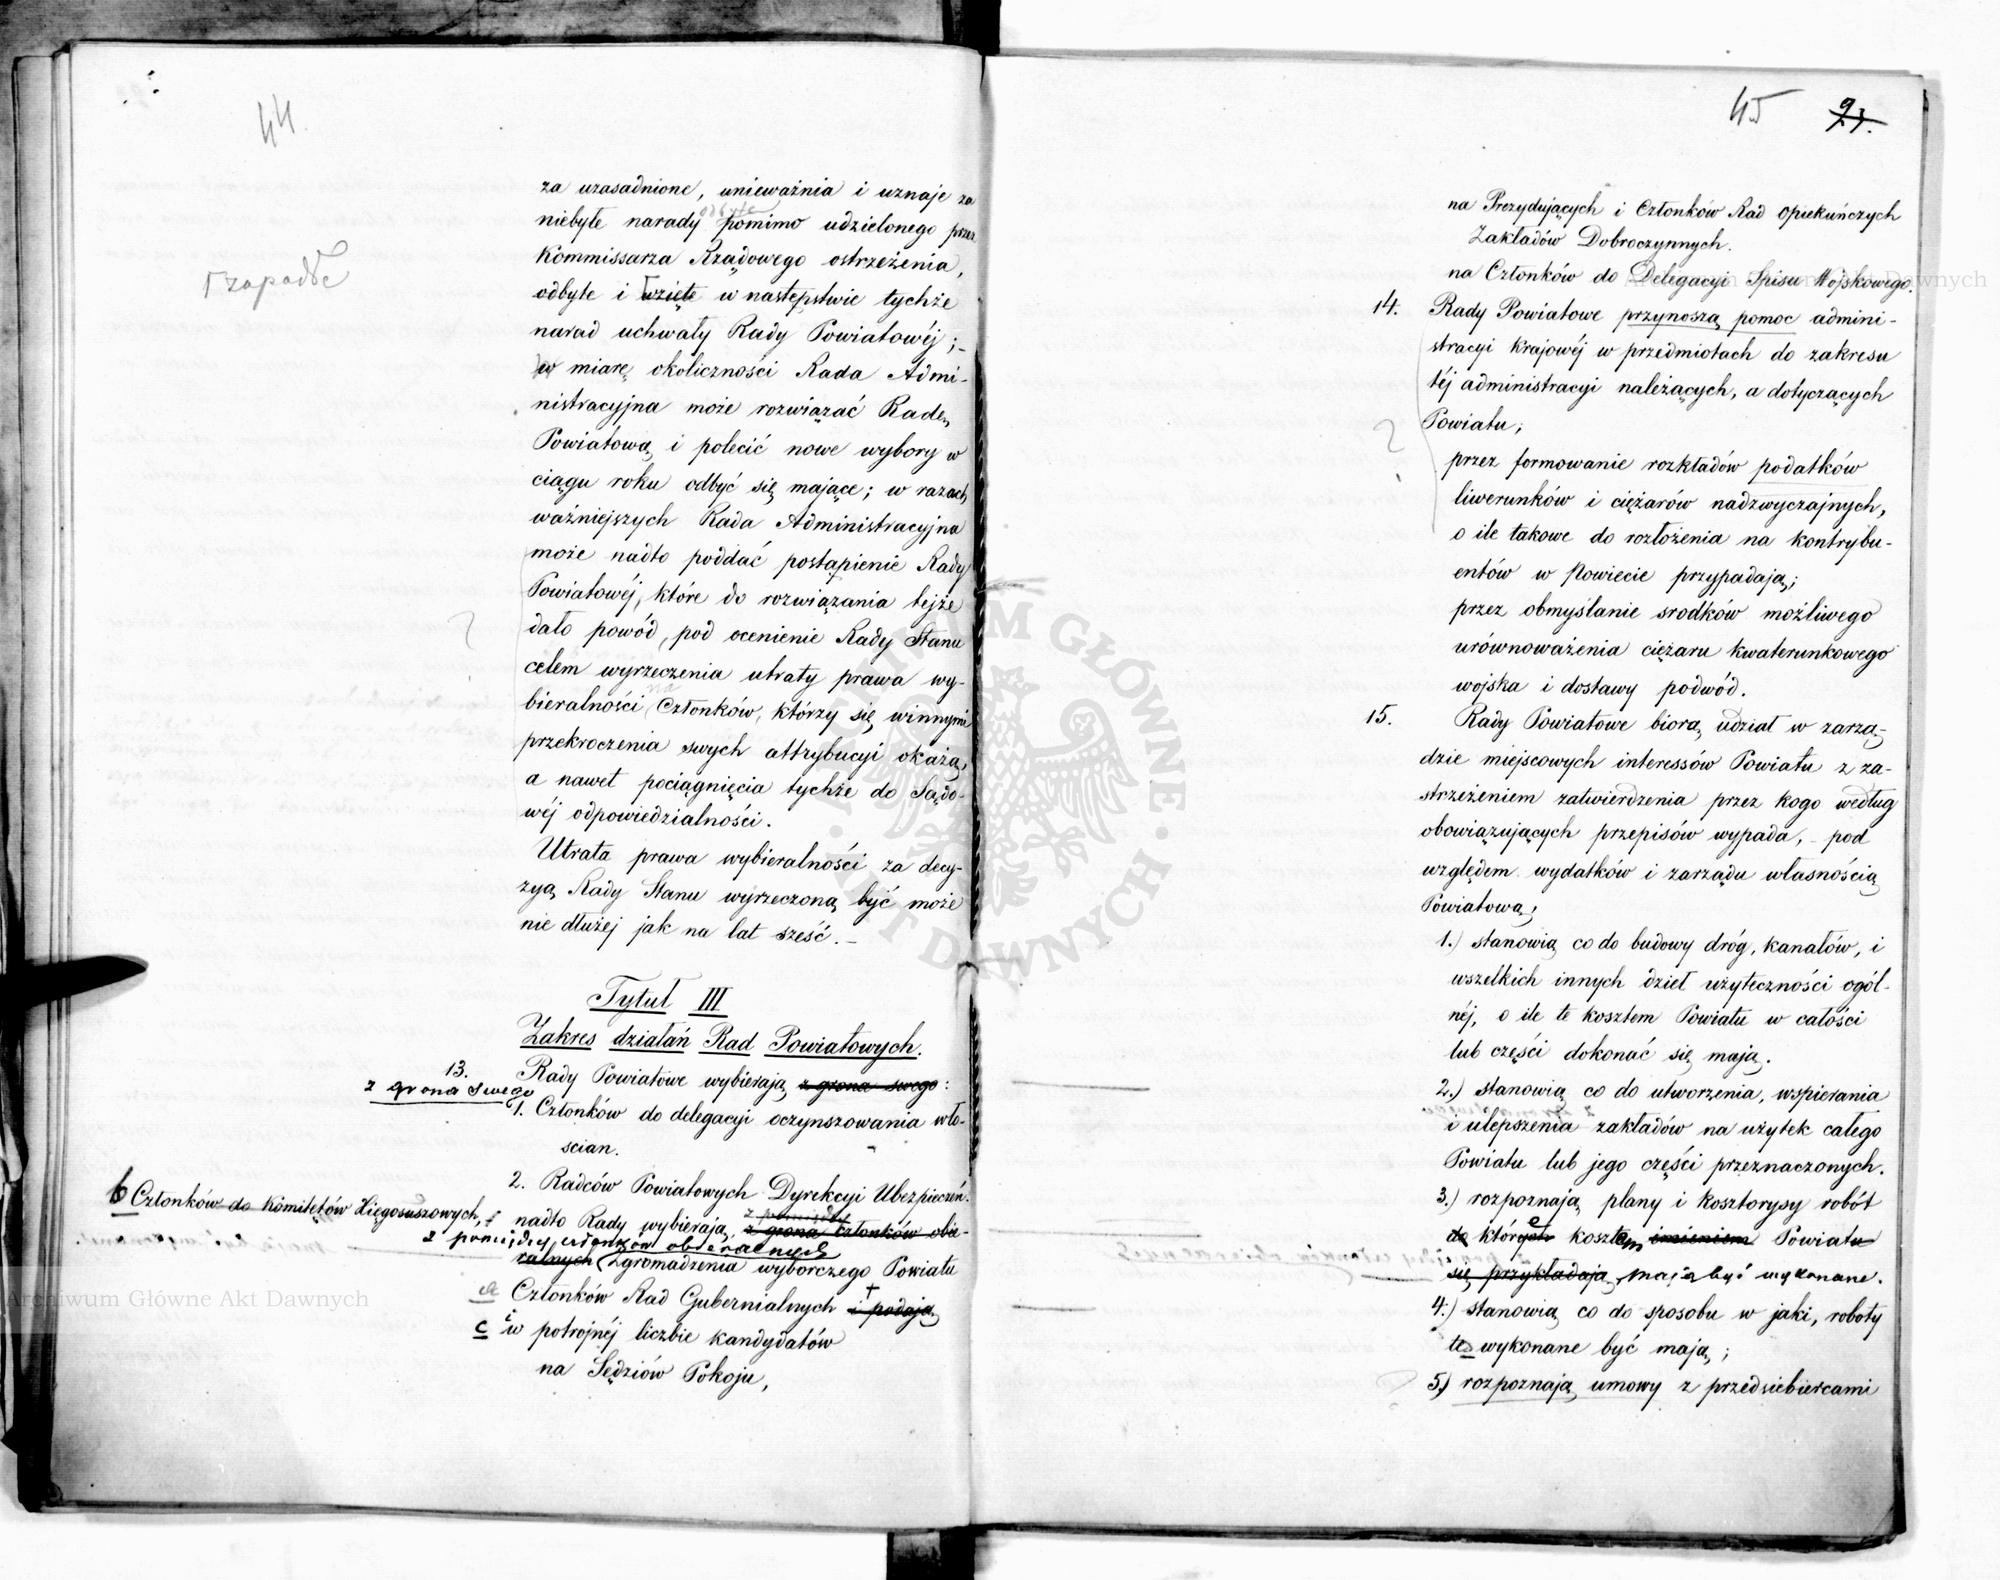 44
za uzasadnione, unieważnia i uznaje za
niebyłe narady odbyte pomimo udzielonego przez
Kommissarza Rządowego ostrzeżenia,
zapadłe
odbyte i wzięte w następstwie tychże
narad uchwały Rady Powiatowéj;–
w miarę okoliczności Rada Admi-
nistracyjna może rozwiązać Radę
Powiatową i polecić nowe wybory w
ciągu roku odbyć się mające; w razach
ważniejszych Rada Administracyjna
może nadto poddać postąpienie Rady
Powiatowéj, które do rozwiązania tejże
?
dało powód, pod ocenienie Rady Stanu
celem wyrzeczenia utraty prawa wy-
bieralności na Członków, którzy się winnymi
przekroczenia swych attrybucyi okażą,
a nawet pociągnięcia tychże do Sądo-
wéj odpowiedzialności.
Utrata prawa wybieralności za decy-
zyą Rady Stanu wyrzeczoną być może
nie dłużéj jak na lat sześć.–
Tytuł III
Zakres działań Rad Powiatowych.
13.
Rady Powiatowe wybierają z grona swego:
z grona swego
1. Członków do delegacyi oczynszowania wło-
scian.
2. Radców Powiatowych Dyrekcyi Ubezpieczeń.
b Członków do Komitetów Xięgosuszowych,
z pomiędzy
nadto Rady wybierają z grona Członków obie-
z pomiędzy członków obieralnych
ralnych Zgromadzenia wyborczego Powiatu
a Członków Rad Gubernialnych i podają
c i w potrojnéj liczbie kandydatów
na Sędziów Pokoju,
45
na Prezydujących i Członków Rad Opiekuńczych
Zakładów Dobroczynnych.
na Członków do Delegacyi Spisu Wojskowego.
14. Rady Powiatowe przynoszą pomoc admini-
stracyi krajowéj w przedmiotach do zakresu
téj administracyi należących, a dotyczących
Powiatu;
?
przez formowanie rozkładów podatków
liwerunków i ciężarów nadzwyczajnych,
o ile takowe do rozłożenia na kontrybu-
entów w Powiecie przypadają;
przez obmyślanie srodków możliwego
urównoważenia ciężaru kwaterunkowego
wojska i dostawy podwód.
15. Rady Powiatowe biorą udział w zarzą-
dzie miejscowych interessów Powiatu z za-
strzeżeniem zatwierdzenia przez kogo według
obowiązujących przepisów wypada, – pod
względem wydatków i zarządu własnością
Powiatową;
1.) stanowią co do budowy dróg, kanałów, i
wszelkich innych dzieł użyteczności ogól-
néj, o ile te kosztem Powiatu w całości
lub części dokonać się mają.
2.) stanowią co do utworzenia, wspierania
i ulepszenia zakładów na użytek całego
Powiatu lub jego części przeznaczonych.
3.) rozpoznają plany i kosztorysy robót
do których kosztem imieniem Powiatu
się przykładają mają być wykonane.
4.) stanowią co do sposobu w jaki, roboty
te wykonane być mają;
5.) rozpoznają umowy z przedsiebiercami
ARCHIWUM GŁÓWNE AKT DAWNYCH
Archiwum Główne Akt Dawnych
Archiwum Główne Akt Dawnych